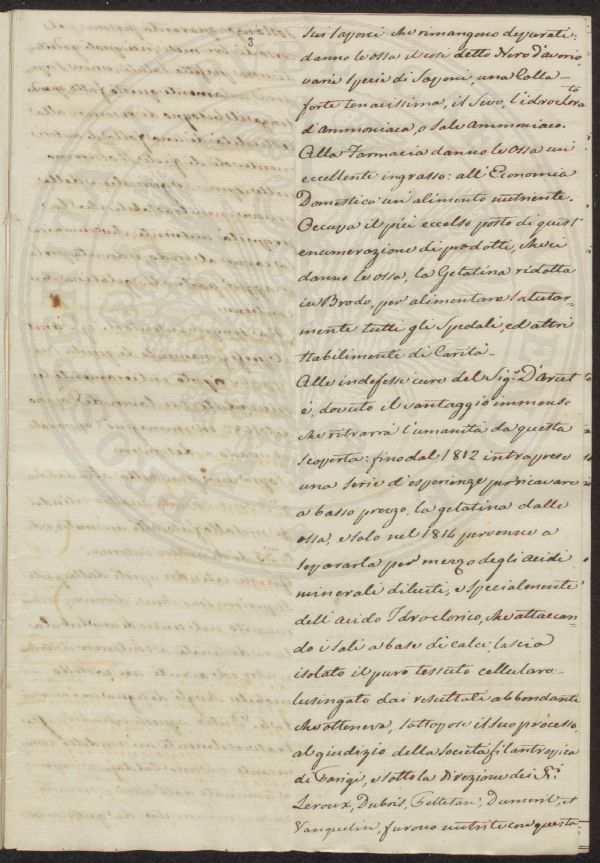 3
sui saponi che rimangono depurati:
danno le ossa il così detto Nero d'avorio,
varie specie di Saponi, una Colla
forte tenacissima, il Sevo, l'idroclorato
d'ammoniaca, o Sale ammoniaco.
Alla Farmacia danno le ossa un
eccellente ingrasso: all'Economia
Domestica un'alimento nutriente.
Occupa il più eccelso posto di quest'
enumerazione di prodotti, che ci
danno le ossa, la Gelatina ridotta
in Brodo, per alimentare salutar-
mente tutti gli Spedali, ed altri
stabilimenti di Carità.
Alle indefesse cure del Sig.r D'arcet
è, dovuto il vantaggio immenso
che ritrarrà l'umanità da questa
scoperta: fino dal 1812 intraprese
una serie d'esperienze per ricavare
a basso prezzo, la gelatina dalle
ossa, e solo nel 1814 pervenne a
separarla per mezzo degli acidi
minerali diluiti, e specialmente
dell'acido Idroclorico, che attaccan-
do i sali a base di calce, lascia
isolato il puro tessuto cellulare:
lusingato dai resultati abbondanti
che otteneva, sottopose il suo processo
al giudizio della società filantropica
di Parigi, e sotto la direzione dei S.i
Leroux, Dubois, Pelletan, Dumeril, et
Vauquelin furono nutrite con questa